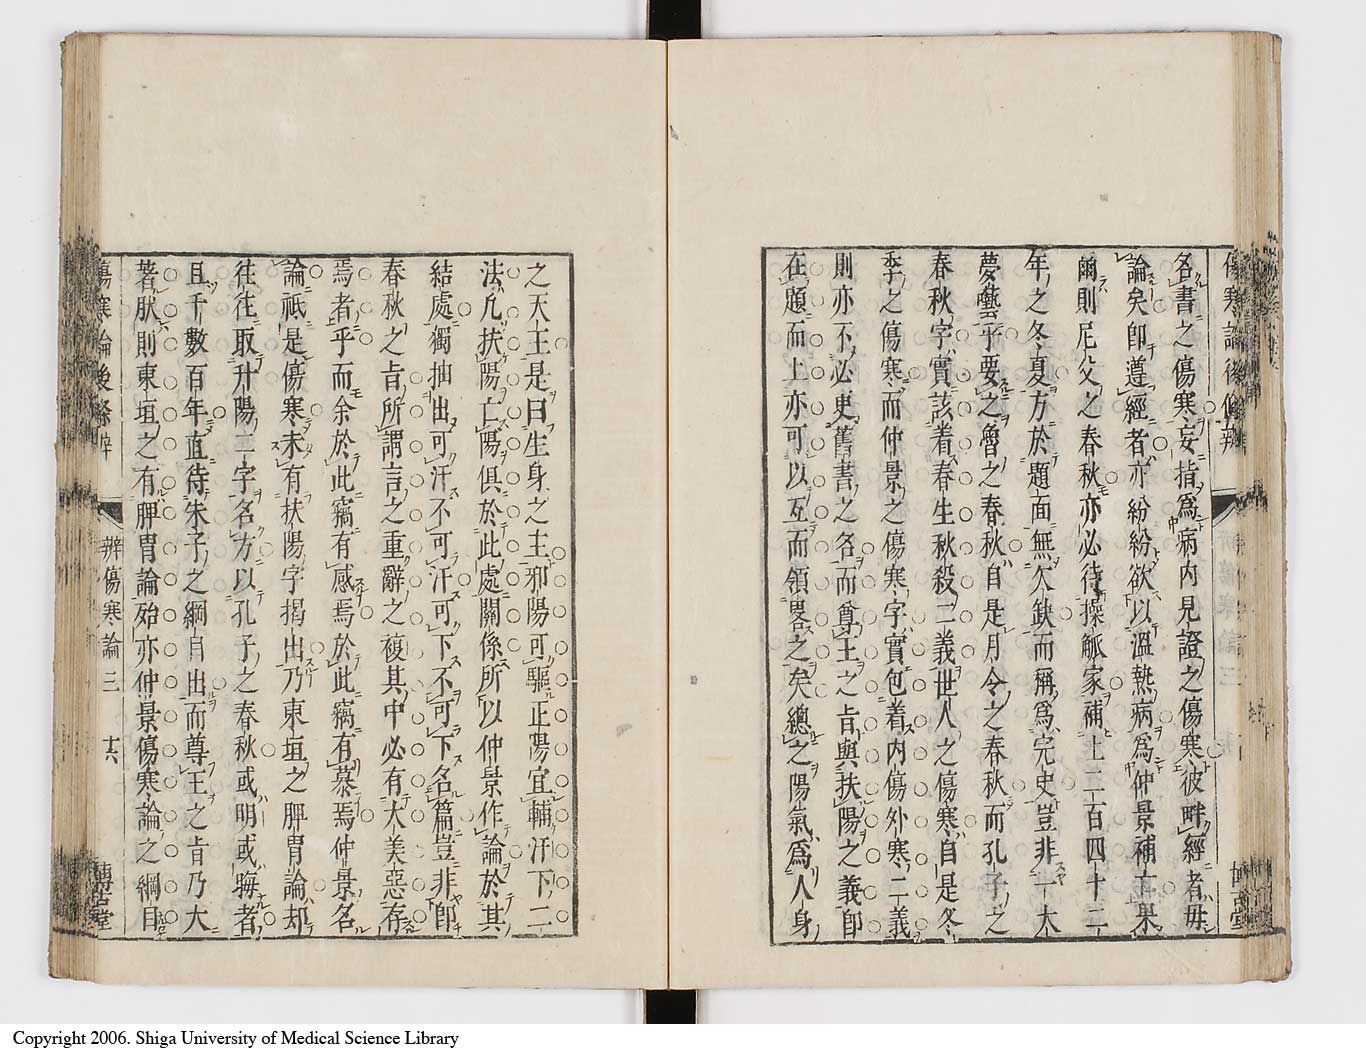 名書之傷寒妄指爲病内見證之傷寒彼畔經者毋
論矣卽遵經者亦紛紛欲以溫熱病爲仲景補亡果
爾則尼父之春秋亦必待操觚家補上二百四十二
年之冬夏方於題面無欠缺而稱爲完史豈非一大
夢藝乎要之魯之春秋自是月令之春秋而孔子之
春秋字實該着春生秋殺二義世人之傷寒自是冬
季之傷寒而仲景之傷寒字實包着内傷外寒二義
則亦不必史舊書之名而尊王之旨與扶陽之義卽
在題而上亦可以互而領畧之矣總之陽氣爲人身
之天王是曰生身之主邪陽可驅正陽宜輔汗下二
法凡扶陽亡陽俱於此處關係所以仲景作論於其
結處獨抽出可汗不可汗可下不可下名篇豈非卽
春秋之旨所謂言之重辭之複其中必有大美惡存
焉者乎而余於此竊有感焉於此竊有慕焉仲景名
論祇是傷寒未有扶陽字揭出乃東垣之脾胃論却
往往取升陽二字名方以孔子之春秋或明或晦者
且千數百年直待朱子之綱目出而尊王之旨乃大
著肰則東垣之有脾胃論殆亦仲景傷寒論之綱目
傷寒論後條辨
辨傷寒論三
十六
博古堂
Copyright 2006. Shiga University of Medical Science Library